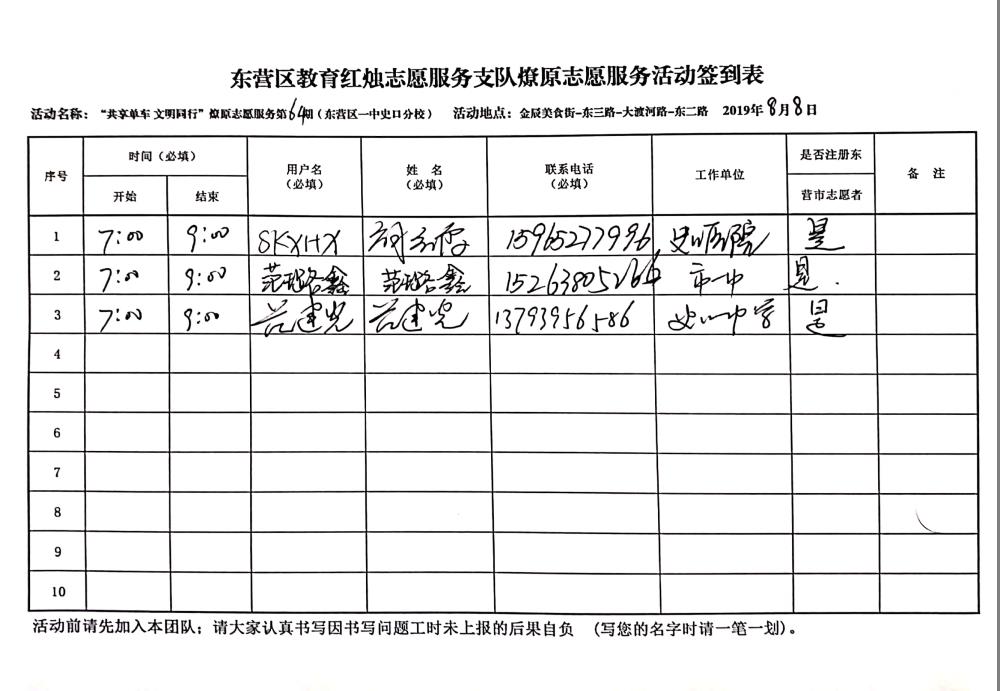 东营区教育红烛志愿服务支队燎原志愿服务活动签到表
活动名称：“共享单车 文明同行”燎原志愿服务第64期（东营区一中史口分校） 活动地点：金辰美食街-东三路-大渡河路-东二路 2019年8月8日
序号 时间（必填） 用户名（必填） 姓 名（必填） 联系电话（必填） 工作单位 是否注册东营市志愿者 备 注
开始 结束
1 7:00 9:00 SKXHX 15965277996 史口医院 是
2 7:00 9:00 范璐鑫 范璐鑫 15263805266 市一中 是.
3 7:00 9:00 范建光 范建光 13793956586 史口中学 是
4
5
6
7
8
9
10
活动前请先加入本团队；请大家认真书写因书写问题工时未上报的后果自负 （写您的名字时请一笔一划）。